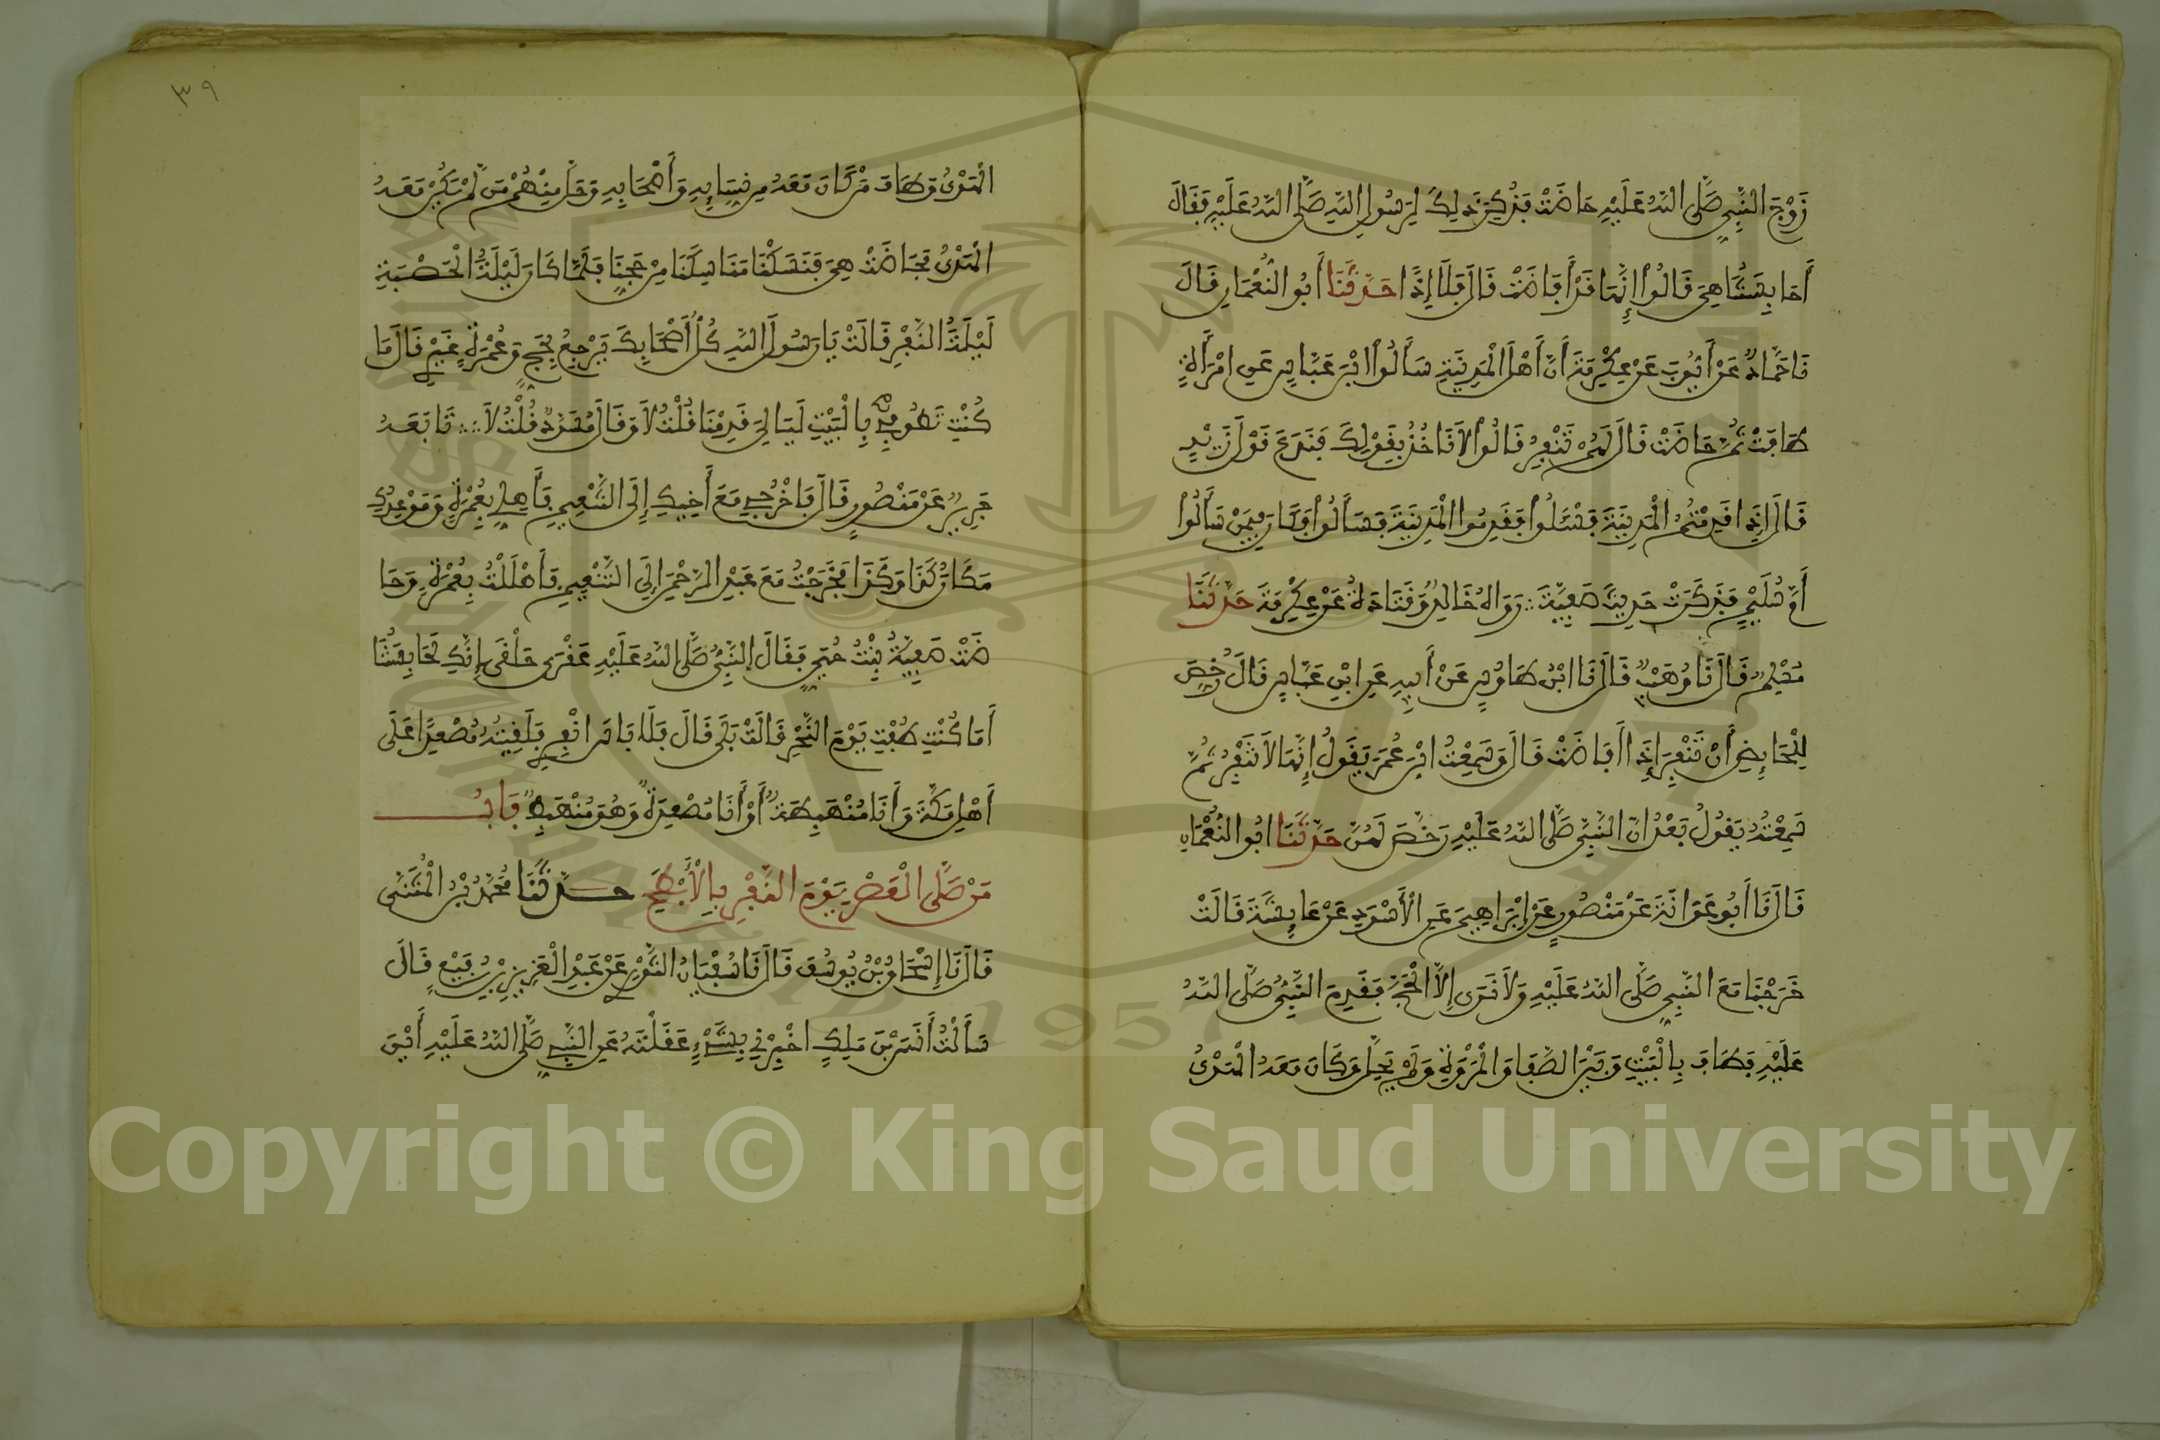 زَوْجَ النَّبِيِّ صَلَّى اللَّهُ عَلَيْهِ حَاضَتْ فَذُكِرَ ذَلِكَ لِرَسُولِ اللَّهِ صَلَّى اللَّهُ عَلَيْهِ فَقَالَ
أَحَابِسَتُنَا هِيَ قَالُوا إِنَّهَا قَدْ أَفَاضَتْ قَالَ فَلَا إِذًا حَدَّثَنَا أَبُو النُّعْمَانِ قَالَ
نَا حَمَّادٌ عَنْ أَيُّوبَ عَنْ عِكْرِمَةَ أَنَّ أَهْلَ الْمَدِينَةِ سَأَلُوا ابْنَ عَبَّاسٍ عَنِ امْرَأَةٍ
طَافَتْ ثُمَّ حَاضَتْ قَالَ لَهُمْ تَنْفِرُ قَالُوا لَا نَاخُذُ بِقَوْلِكَ فَنَدَعَ قَوْلَ زَيْدٍ
قَالَ إِذَا قَدِمْتُمُ الْمَدِينَةَ فَسْئَلُوا فَقَدِمُوا الْمَدِينَةَ فَسَأَلُوا فَكَانَ فِيمَنْ سَأَلُوا
أُمَّ سُلَيْمٍ فَذَكَرَتْ حَدِيثَ صَفِيَّةَ ∴ رَوَاهُ خَالِدٌ وَقَتَادَةُ عَنْ عِكْرِمَةَ حَدَّثَنَا
مُسْلِمٌ قَالَ نَا وُهَيْبٌ قَالَ نَا ابْنُ طَاوُسٍ عَنْ أَبِيهِ عَنِ ابْنِ عَبَّاسٍ قَالَ رُخِّصَ
لِلْحَايِضِ أَنْ تَنْفِرَ إِذَا أَفَاضَتْ قَالَ وَسَمِعْتُ ابْنَ عُمَرَ يَقُولُ إِنَّهَا لَا تَنْفِرُ ثُمَّ
سَمِعْتُهُ يَقُولُ بَعْدُ أَنَّ النَّبِيَّ صَلَّى اللَّهُ عَلَيْهِ رَخَّصَ لَهُنَّ حَدَّثَنَا ابُو النُّعْمَانِ
قَالَ نَا أَبُو عَوَانَةَ عَنْ مَنْصُورٍ عَنْ إِبْرَاهِيمَ عَنِ الْأَسْوَدِ عَنْ عَايِشَةَ قَالَتْ
خَرَجْنَا مَعَ النَّبِيِّ صَلَّى اللَّهُ عَلَيْهِ وَلَا نَرَى إِلَّا الْحَجَّ فَقَدِمَ النَّبِيُّ صَلَّى اللَّهُ
عَلَيْهِ فَطَافَ بِالْبَيْتِ وَبَيْنَ الصَّفَا وَالْمَرْوَةِ وَلَمْ يَحِلَّ وَكَانَ مَعَهُ الْهَدْيُ
٣٩
الْهَدْيُ وَطَافَ مَنْ كَانَ مَعَهُ مِن نِسَايِهِ وَأَصْحَابِهِ وَحَلَّ مِنْهُمْ مَن لَمْ يَكُنْ مَعَهُ
الْهَدْيُ فَحَاضَتْ هِيَ فَنَسَكْنَا مَنَاسِكَنَا مِنْ حَجِّنَا فَلَمَّا كَانَ لَيْلَةُ الْحَصْبَةِ
لَيْلَةُ النَّفْرِ قَالَتْ يَا رَسُولَ اللَّهِ كُلُّ أَصْحَابِكَ يَرْجِعُ بِحَجٍّ وَعُمْرَةٍ غَيْرِي قَالَ مَا
كُنْتِ تَطُوفِي بِالْبَيْتِ لَيَالِيَ قَدِمْنَا قُلْتُ لَا وَقَالَ مُسَدَّدٌ قُلْتُ لَا ∴ تَابَعَهُ
جَرِيرٌ عَنْ مَنْصُورٍ قَالَ فَاخْرُجِي مَعَ أَخِيكِ إِلَى التَّنْعِيمِ فَأَهِلِّي بِعُمْرَةٍ وَمَوْعِدُكِ
مَكَانُ كَذَا وَكَذَا فَخَرَجْتُ مَعَ عَبْدِ الرَّحْمَنِ إِلَى التَّنْعِيمِ فَأَهْلَلْتُ بِعُمْرَةٍ وَحَا
ضَتْ صَفِيَّةُ بِنْتُ حُيَيٍّ فَقَالَ النَّبِيُّ صَلَّى اللَّهُ عَلَيْهِ عَقْرَى حَلْقَى إِنَّكِ لَحَابِسَتُنَا
أَمَا كُنْتِ طُفْتِ يَوْمَ النَّحْرِ قَالَتْ بَلَى قَالَ فَلَا بَاسَ انْفِرِي فَلَقِيتُهُ مُصْعِدًا عَلَى
أَهْلِ مَكَّةَ وَأَنَا مُنْهَبِطَةٌ أَوْ أَنَا مُصْعِدَةٌ وَهُوَ مُنْهَبِطٌ بَابُ
مَنْ صَلَّى الْعَصْرَ يَوْمَ النَّفْرِ بِالْأَبْطَحِ حَدَّثَنَا مُحَمَّدُ بْنُ الْمُثَنَّى
قَالَ نَا إِسْحَاقُ بْنُ يُوسُفَ قَالَ نَا سُفْيَانُ الثَّوْرِي عَنْ عَبْدِ الْعَزِيزِ بْنِ رُفَيْعٍ قَالَ
سَأَلْتُ أَنَسَ بْنَ مَلِكٍ اخْبِرْنِي بِشَيْءٍ عَقَلْتَهُ عَنِ النَّبِيِّ صَلَّى اللَّهُ عَلَيْهِ أَيْنَ
Copyright © King Saud University
1957